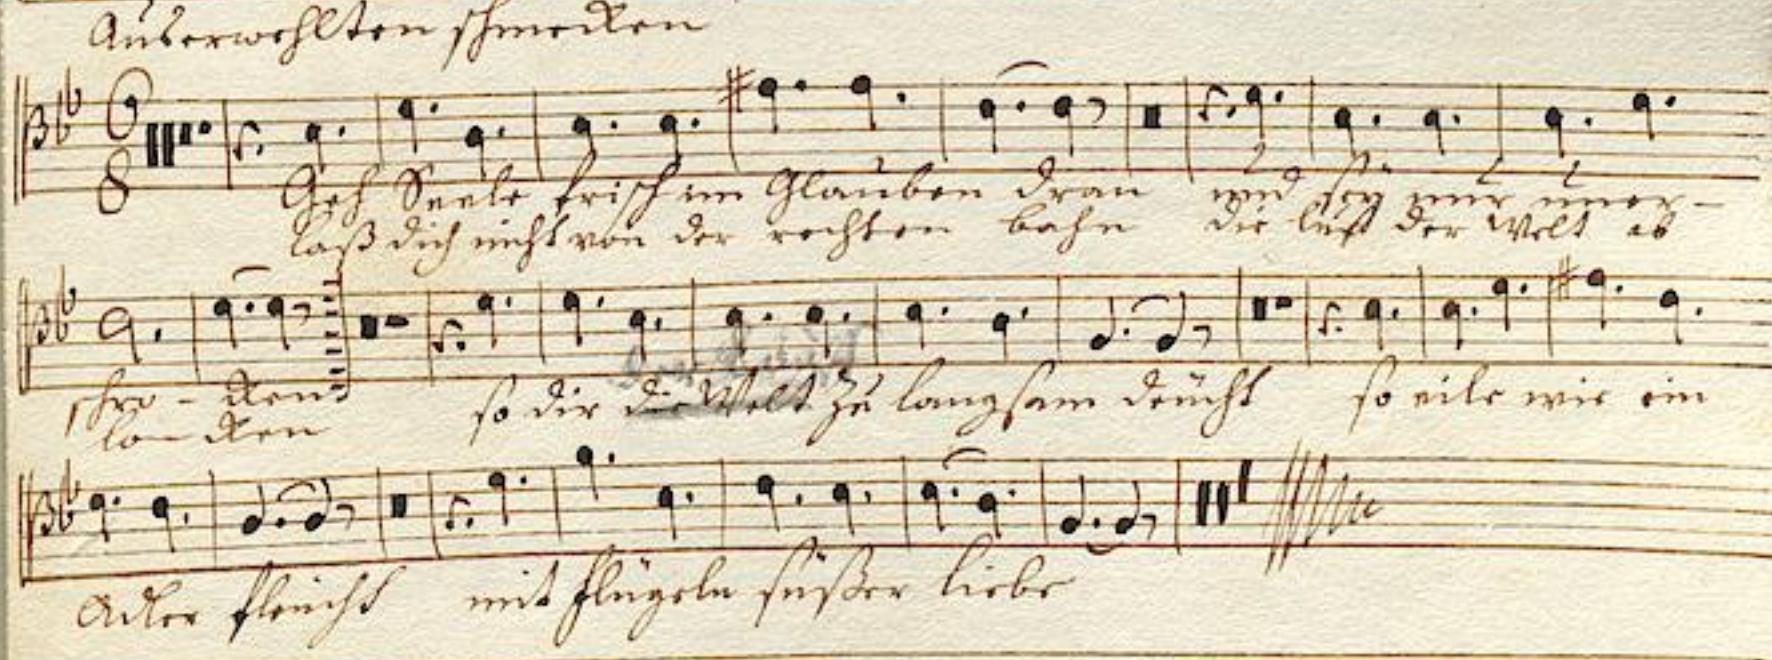 Auserwehlten schmecken
6
8
Geh Seele frisch im Glauben dran und sey nur uner-
laß dich nicht von der rechten bahn die lust der Welt ab
schro - cken
lo - cken
so dir die Welt zu langsam deücht so eile wie ein
Adler fleücht mit flügeln süßer liebe